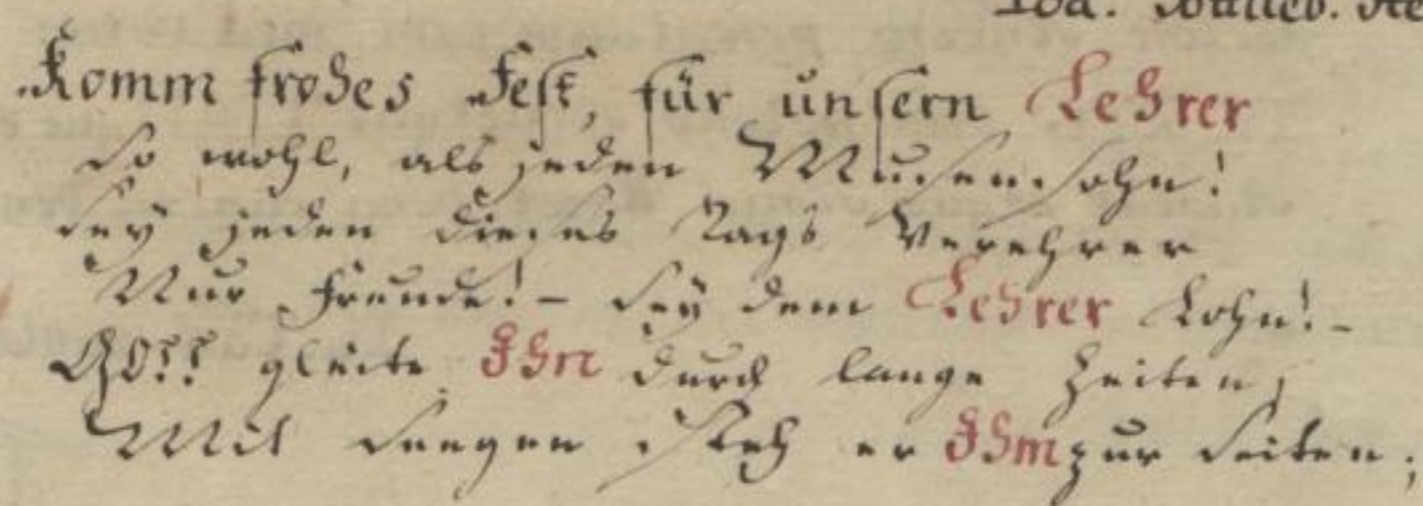 Joa. Gottlieb.
Komm frohes Fest, für unsern Lehrer
So wohl, als jeden Musensohn!
Sey jeden dieses Tags Verehrer
Nur Freude! - Sey dem Lehrer Lohn! -
GOTT gleite Ihn durch lange Zeiten,
Mit Seegen steh er Ihm zur Seiten;